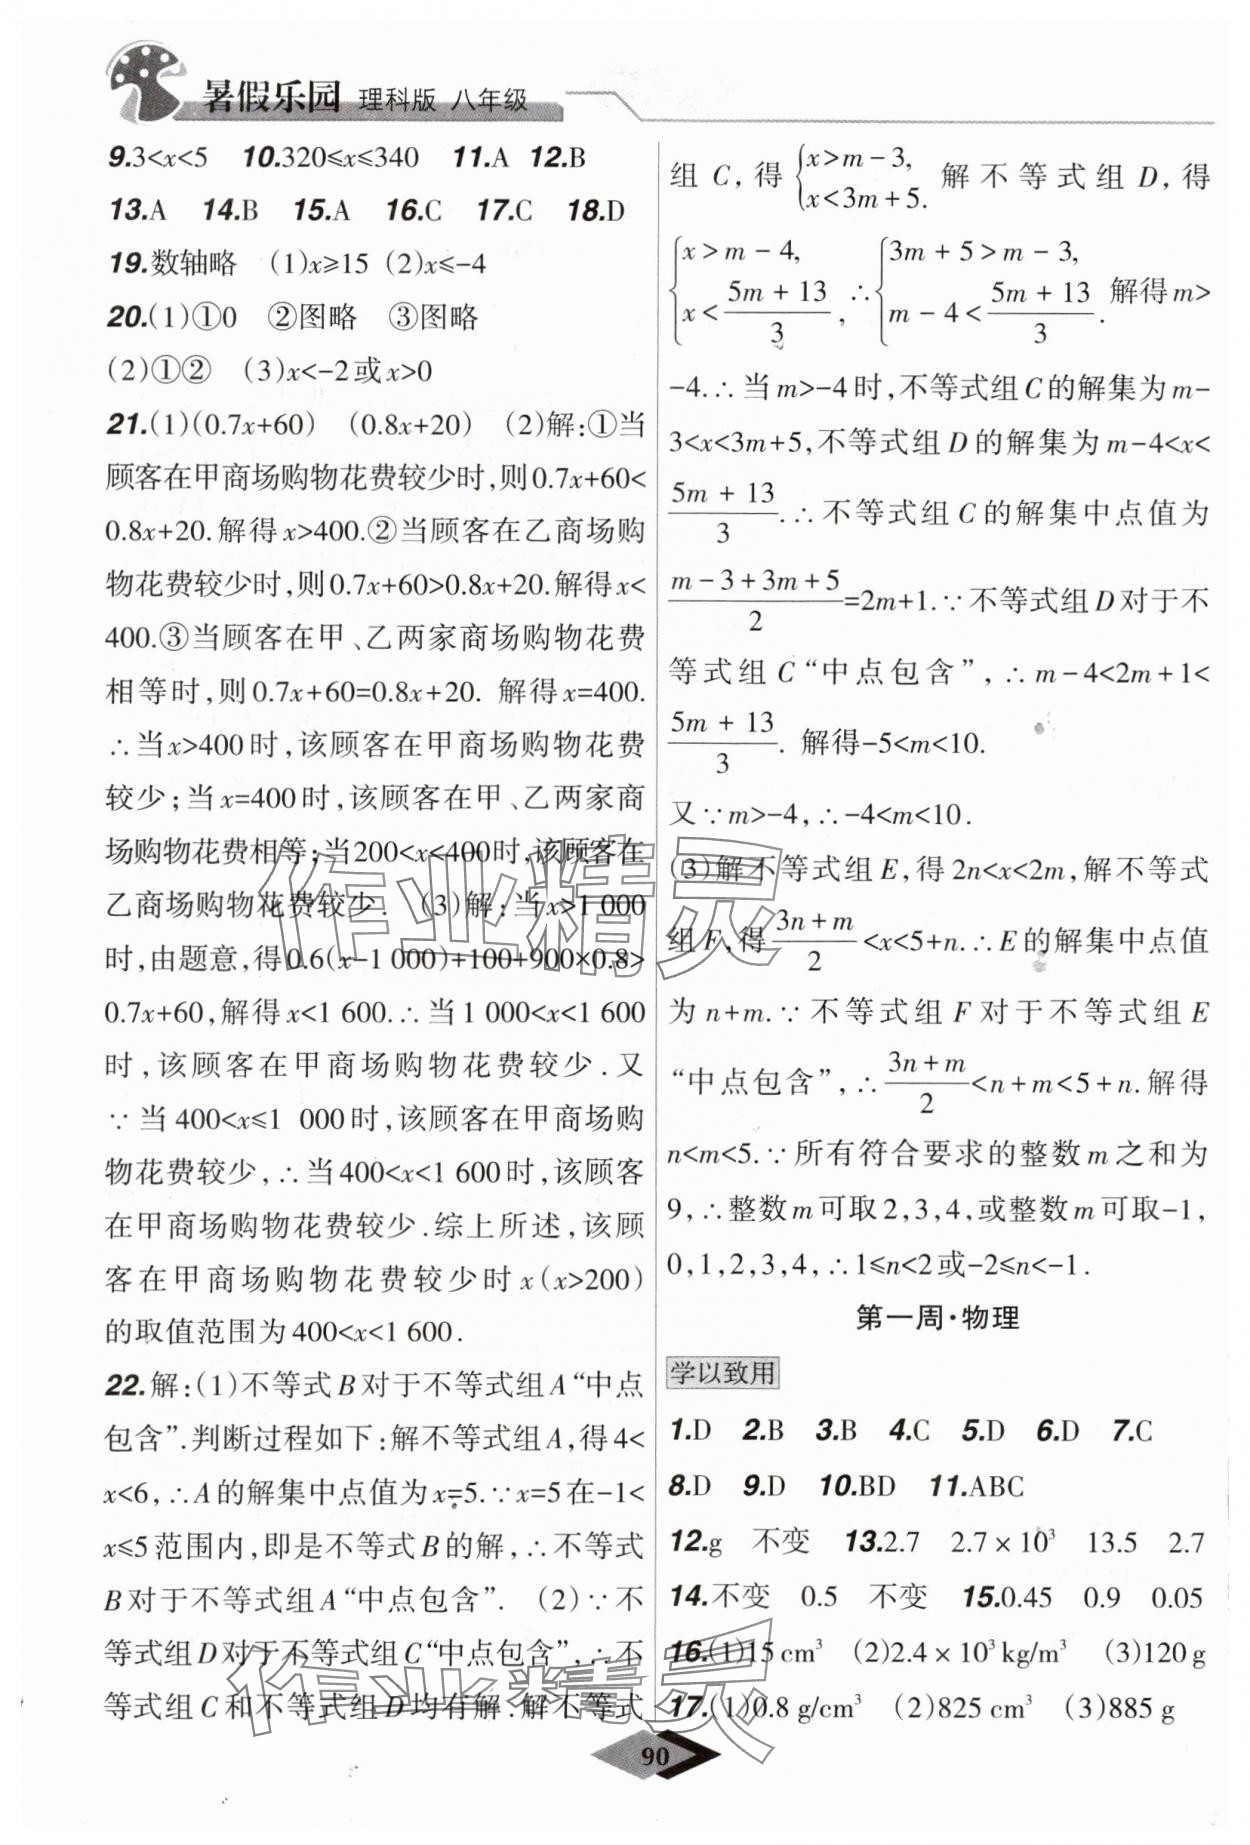 暑假乐园 理科版 八年级
9.3<x<5 10.320≤x≤340 11.A 12.B
13.A 14.B 15.A 16.C 17.C 18.D
19.数轴略 (1)x≥15 (2)x≤-4
20.(1)①0 ②图略 ③图略
(2)①② (3)x<-2或x>0
21.(1)(0.7x+60) (0.8x+20) (2)解:①当
顾客在甲商场购物花费较少时,则0.7x+60<
0.8x+20.解得x>400.②当顾客在乙商场购
物花费较少时,则0.7x+60>0.8x+20.解得x<
400.③当顾客在甲、乙两家商场购物花费
相等时,则0.7x+60=0.8x+20. 解得x=400.
∴当x>400时,该顾客在甲商场购物花费
较少;当x=400时,该顾客在甲、乙两家商
场购物花费相等;当200<x<400时,该顾客在
乙商场购物花费较少. (3)解:当x>1 000
时,由题意,得0.6(x-1 000)+100+900×0.8>
0.7x+60,解得x<1 600.∴当1 000<x<1 600
时,该顾客在甲商场购物花费较少.又
∵当400<x≤1 000时,该顾客在甲商场购
物花费较少,∴当400<x<1 600时,该顾客
在甲商场购物花费较少.综上所述,该顾
客在甲商场购物花费较少时x(x>200)
的取值范围为400<x<1 600.
22.解:(1)不等式B对于不等式组A“中点
包含”.判断过程如下:解不等式组A,得4<
x<6,∴A的解集中点值为x=5.∵x=5在-1<
x≤5范围内,即是不等式B的解,∴不等式
B对于不等式组A“中点包含”. (2)∵不
等式组D对于不等式组C“中点包含”,∴不
等式组C和不等式组D均有解.解不等式
组C,得{x>m-3, x<3m+5. 解不等式组D,得
{x>m-4, x<(5m+13)/3, ∴{3m+5>m-3, m-4<(5m+13)/3. 解得m>
-4.∴当m>-4时,不等式组C的解集为m-
3<x<3m+5,不等式组D的解集为m-4<x<
(5m+13)/3.∴不等式组C的解集中点值为
(m-3+3m+5)/2=2m+1.∵不等式组D对于不
等式组C“中点包含”,∴m-4<2m+1<
(5m+13)/3. 解得-5<m<10.
又∵m>-4,∴-4<m<10.
(3)解不等式组E,得2n<x<2m,解不等式
组F,得(3n+m)/2<x<5+n.∴E的解集中点值
为n+m.∵不等式组F对于不等式组E
“中点包含”,∴(3n+m)/2<n+m<5+n.解得
n<m<5.∵所有符合要求的整数m之和为
9,∴整数m可取2,3,4,或整数m可取-1,
0,1,2,3,4,∴1≤n<2或-2≤n<-1.
第一周·物理
学以致用
1.D 2.B 3.B 4.C 5.D 6.D 7.C
8.D 9.D 10.BD 11.ABC
12.g 不变 13.2.7 2.7×10³ 13.5 2.7
14.不变 0.5 不变 15.0.45 0.9 0.05
16.(1)15 cm³ (2)2.4×10³ kg/m³ (3)120 g
17.(1)0.8 g/cm³ (2)825 cm³ (3)885 g
90
作业精灵
作业精灵